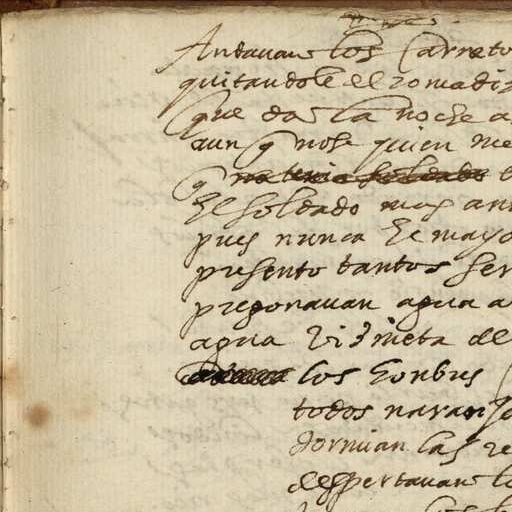 Andauan los Carreto
quitandole el romadiz
que da la noche a
aun q̃ no se quien me
q̃ no tenia soldado
El soldado mas an
pues nunca El mayo
presento tantos ser
pregonauan agua a
agua Vi3nieta de
los honbres
todos naranJa
dormian las re
despertauan lo